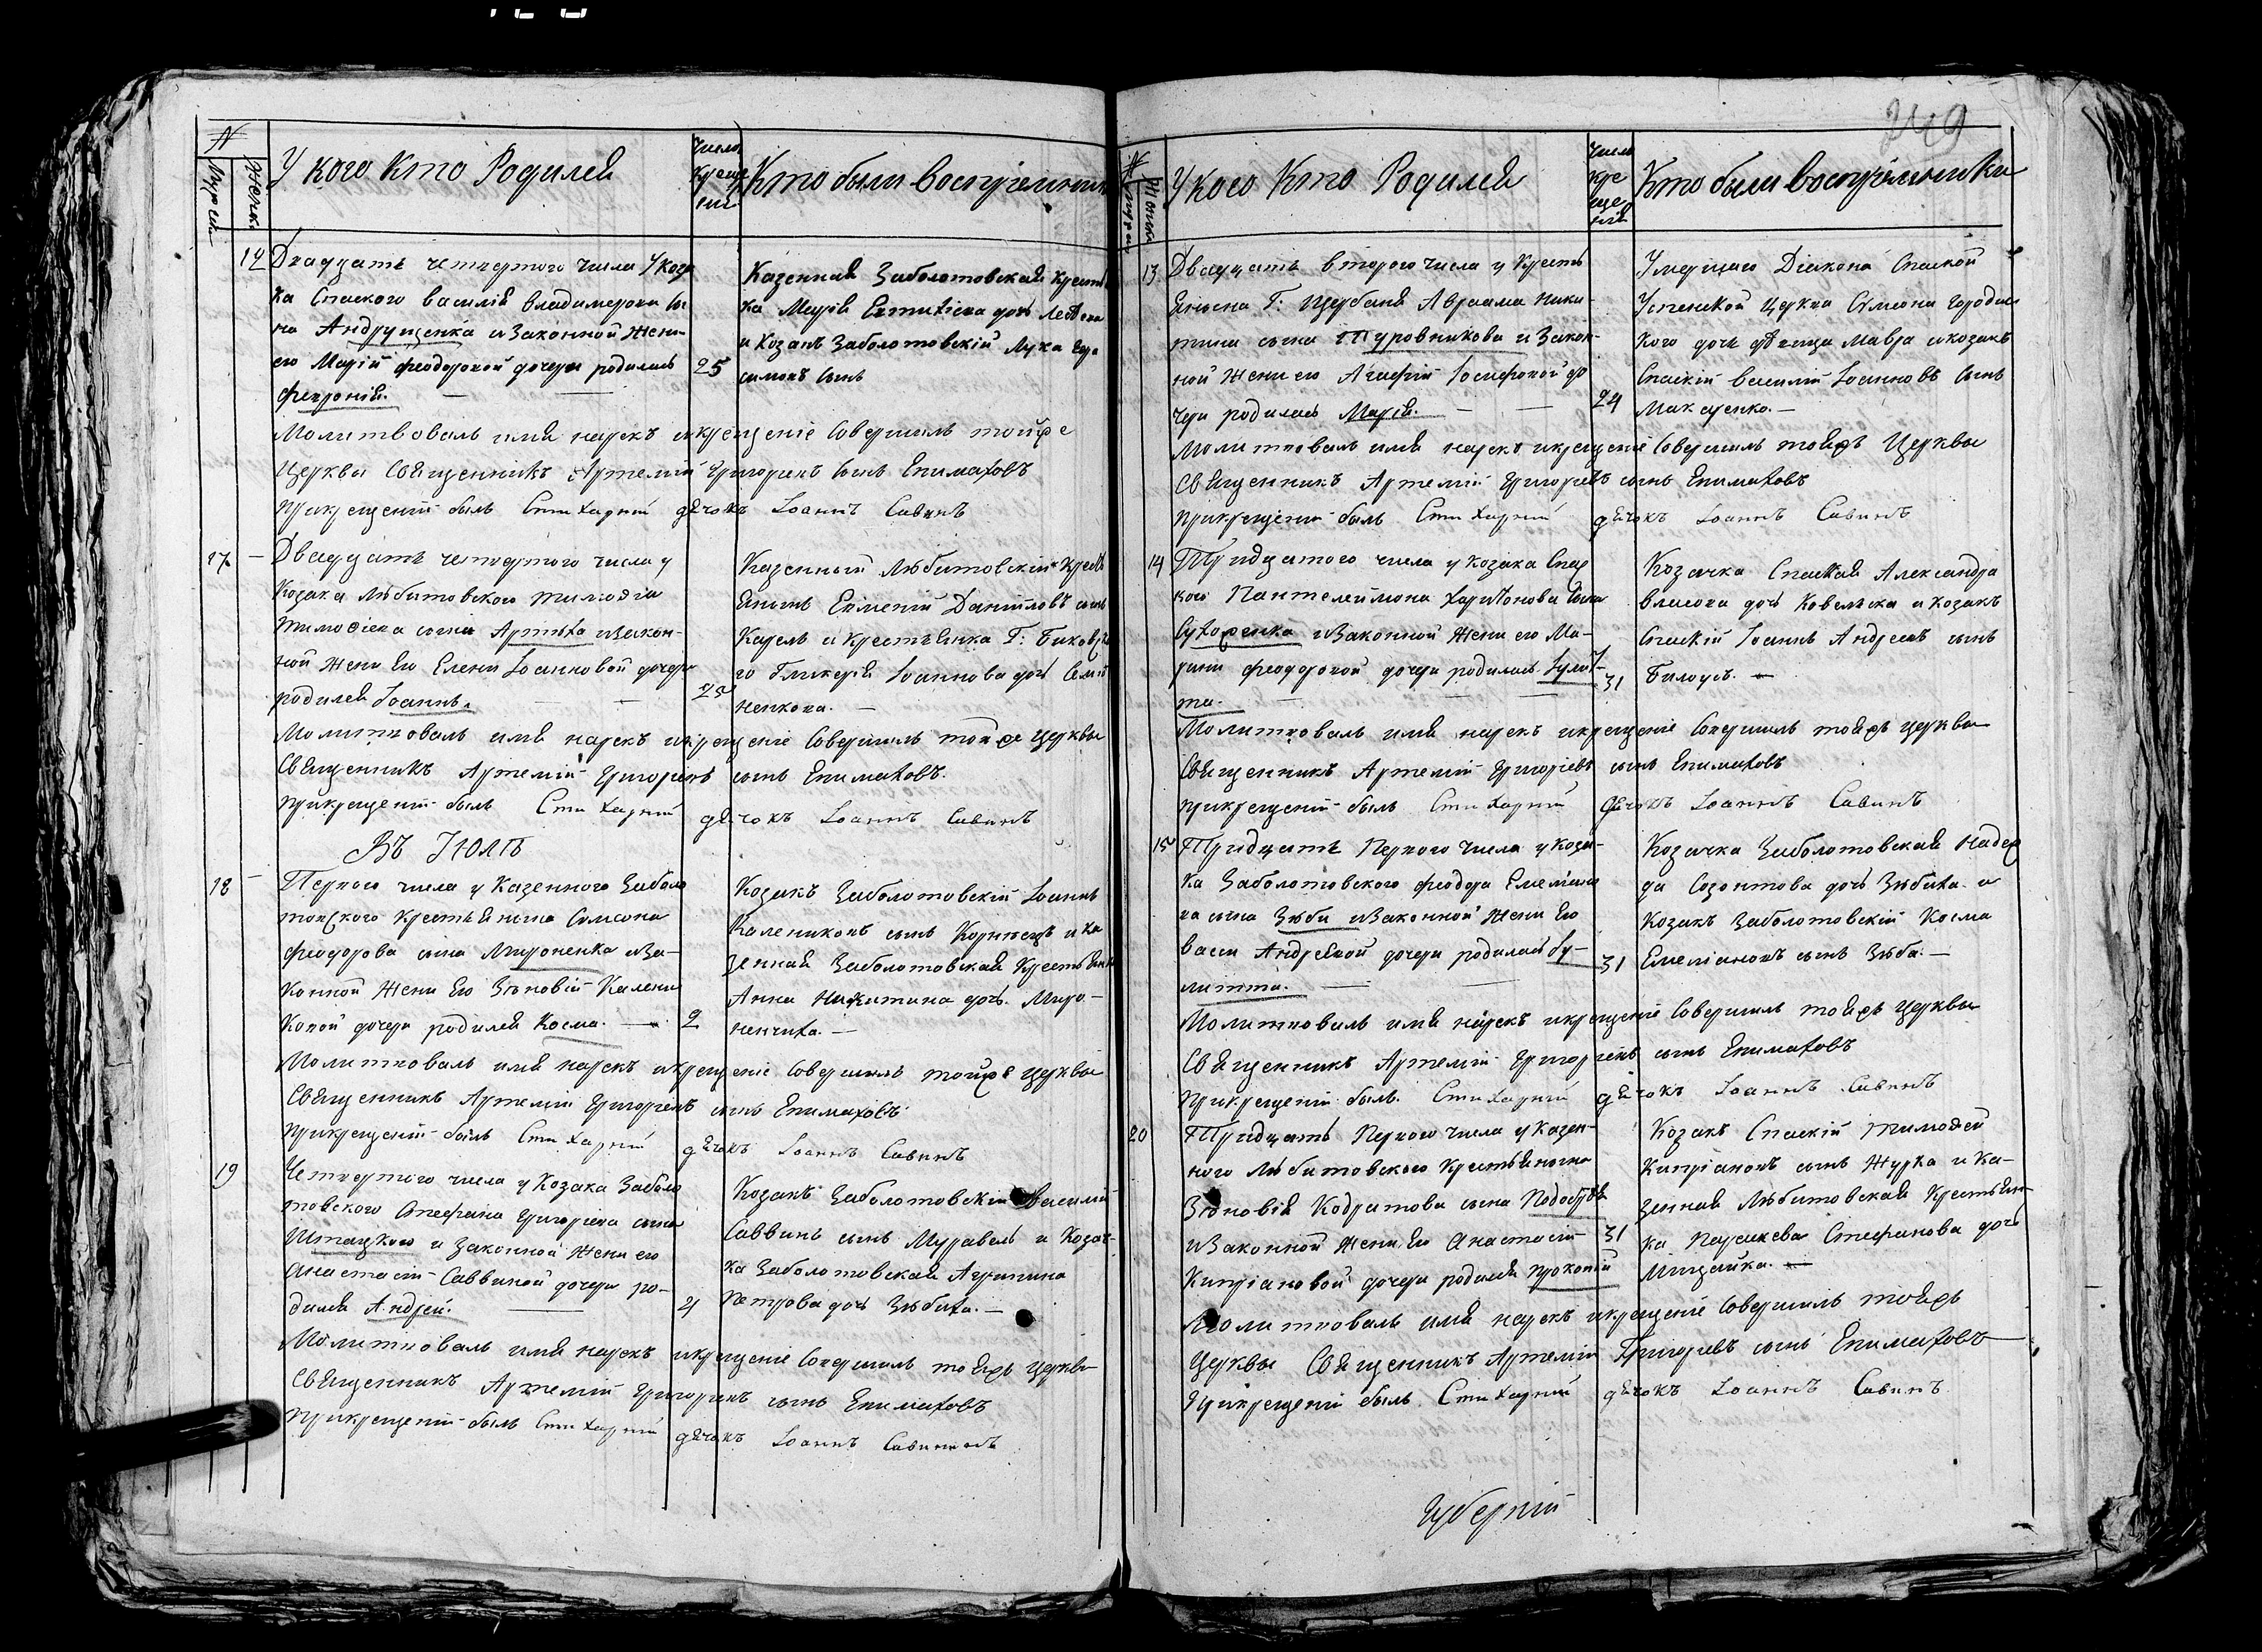 №
Мужеска
Женска
У кого кто Родился
Число Крещенія
Кто были воспріемники
12
Двадцать четвертого числа у коза
ка Спаского василія владимерова сы
на Андрущенка и законной жени
его Маріи феодоровой дочери родилась
феврониія.
25
Казенная Заболотовская крестян
ка Марія Евтихіева дочь
и Козакъ Заболотовскій Лука Гера
симовъ сынъ
Молитвовалъ имя нарекъ и крещеніе совершилъ тойже
Церквы Священникъ Артемій Григоріевъ сынъ Епимаховъ
При крещеніи былъ Стихарній дячокъ Іоаннъ Савинъ
17
Двадцать четвертого числа у
Козака Любитовского тимофія
тимофіева сына Артюха и закон-
ной жени Его Елени Іоанновой дочери
родился Іоаннъ.
25
Казенный Любитовскій Кресть
янинъ Даніиловъ сынъ
Карель и крестьянка Г:
Гликерія Іоаннова дочь
ненкова.
Молитвовалъ имя нарекъ и крещеніе совершилъ тойже церквы
Священникъ Артемій Григоріевъ сынъ Епимаховъ.
При крещеніи былъ Стихарній дячокъ Іоаннъ Савинъ
Въ Іюлѣ
18
Первого числа у Казенного Заболо
товского Крестьянина Симеона
феодорова сына Мироненка и за-
конной жени Его Зѣновіи Калени
ковой дочери родился Косма.
2
Козакъ Заболотовскій Іоаннъ
Калениковъ сынъ Корнѣецъ и Ка
зенная Заболотовская Крестьянка
Анна Никитина дочь Миро-
ненчиха.
Молитвовалъ имя нарекъ и крещеніе совершилъ тойже церквы
Священникъ Артемій Григоріевъ сынъ Епимаховъ
При крещеніи былъ Стихарній дячокъ Іоаннъ Савинъ
19
Четвертого числа у Козака Заболо
товского Стефана Григоріева сына
и законной жени его
Анастасіи Саввиной дочери ро-
дился Андрей.
Козакъ Заболотовскій Василій
Саввинъ сынъ Муравель и Козач-
ка Заболотовская Агрипина
Петрова дочь Зюбиха.
Молитвовалъ имя нарекъ и крещеніе совершилъ тойжъ церквы
Священникъ Артемій Григоріевъ сынъ Епимаховъ
При крещеніи былъ Стихарній дячокъ Іоаннъ Савинъ
249
№
У кого кто Родился
Число крещенія
Кто были воспріемники
13
Двадцать второго числа у Кресть
янина Г: Щербаня Авраама Ники-
тина сына Туровникова и закон-
ной жени его Агафіи Іосифовой до
чери родилась Марія.
24
Умершаго Діакона Спаской
Успенской Церкви Симеона Городис
кого дочь дѣвица Мавра и козакъ
Спаскій василій Іоанновъ сынъ
Макаренко.
Молитвовалъ имя нарекъ и крещеніе совершилъ тойжъ Церквы
Священникъ Артемій Григоріевъ сынъ Епимаховъ
При крещеніи былъ Стихарній дячокъ Іоаннъ Савинъ
14
Тридцатого числа у козака Спас
кого Пантелеимона Харитонова сына
Сухоренка и законной жени его Ма-
рини феодоровой дочери родилась Іулит-
та.
31
Козачка Спаская Александра
власова дочь Ковельска и козакъ
Спаскій Іоаннъ Андреевъ сынъ
Билоусъ.
Молитвовалъ имя нарекъ и крещеніе совершилъ тойжъ церквы
Священникъ Артемій Григоріевъ сынъ Епимаховъ
При крещеніи былъ Стихарній дячокъ Іоаннъ Савинъ
15
Тридцать Первого числа у Коза-
ка Заболотовского феодора Емеліано
ва сына Зюби и законной жени Его
васси Андреевой дочери родилась Іу-
литта.
31
Козачка Заболотовская Надеж
да Созонтова дочь Зюбиха и
Козакъ Заболотовскій Косма
Емеліановъ сынъ Зюба.
Молитвовалъ имя нарекъ и крещеніе совершилъ тойжъ церквы
Священникъ Артемій Григоріевъ сынъ Епимаховъ
При крещеніи былъ Стихарній дячокъ Іоаннъ Савинъ
20
Тридцать Первого числа у Казен-
ного Любитовского Крестьянина
Зѣновія Кодратова сына
и законной жени Его Анастасіи
Кипріановой дочери родился Прокопій
31
Козакъ Спаскій тимофей
Кипріановъ сынъ Журка и Ка-
зенная Любитовская Крестьян-
ка Параскева Стефанова дочь
Молитвовалъ имя нарекъ и крещеніе совершилъ тойжъ
Церквы Священникъ Артемій Григоріевъ сынъ Епимаховъ
При крещеніи былъ Стихарній дячокъ Іоаннъ Савинъ
Губерніи